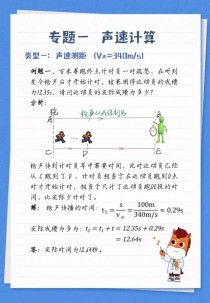 专题一 声速计算
类型一：声速测距 (V声=340m/s)
例题一，百米赛跑终点计时员一时疏忽，在听到
发令枪声后才开始计时，结果测得运动员的成绩
为12.35s，请问运动员的实际成绩为多少？
分析：
枪
枪声从A传到B
A
B
C
D
E
枪声传到计时员耳中需要时间，此时运动员已经
从C跑到了D，计时员相当于在运动员跑到D点
时才开始计时，相当于只计了运动员跑DE段的时
间，比实际少计时了。
解：枪声传播的时间：t₁ = s/v声 = 100m/340m/s ≈ 0.29s
实际成绩为多少：t₂ = t₁ + t = 12.35s + 0.29s
= 12.64s
答：实际时间为12.64s。